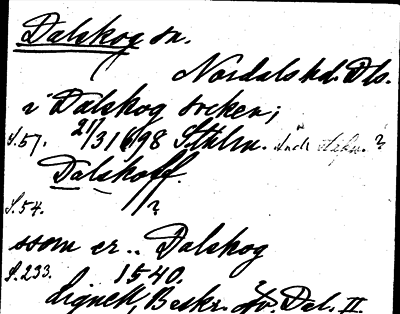 Dalskog sn.
Nordals hd. Dls.
i Dalskog socken;
S.57. 21/3 1698 Sthlm. ?
Dalskoff.
S.54. ?
ssom er .. Dalskog
S.233. 1540.
Lignell, Beskr. öv. Dal. II.